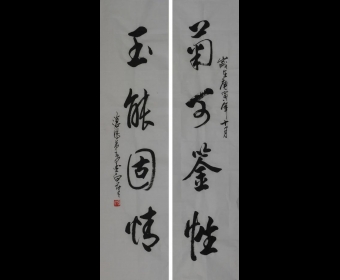 菊可鉴性
岁在庚寅年十月
玉能固情